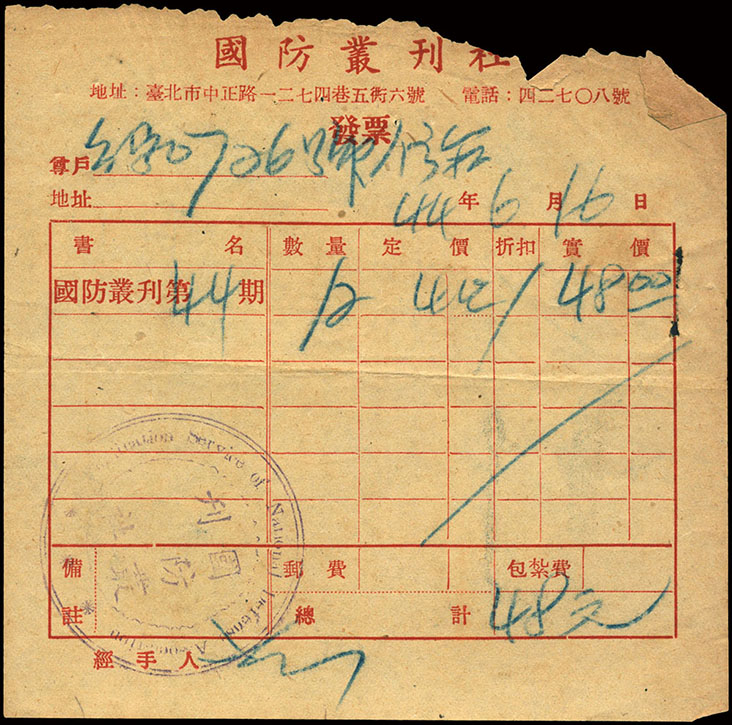 國防叢刊社
地址：臺北市中正路一二七四巷五街六號 電話：四二七〇八號
發票
尊戶 0726號信箱
地址
44年6月16日
書名 數量 定價 折扣 實價
國防叢刊第44期 12 4元 48.00
備註 郵費 包紮費
總計 48元
經手人
Service of National Defense Association
國防叢刊社